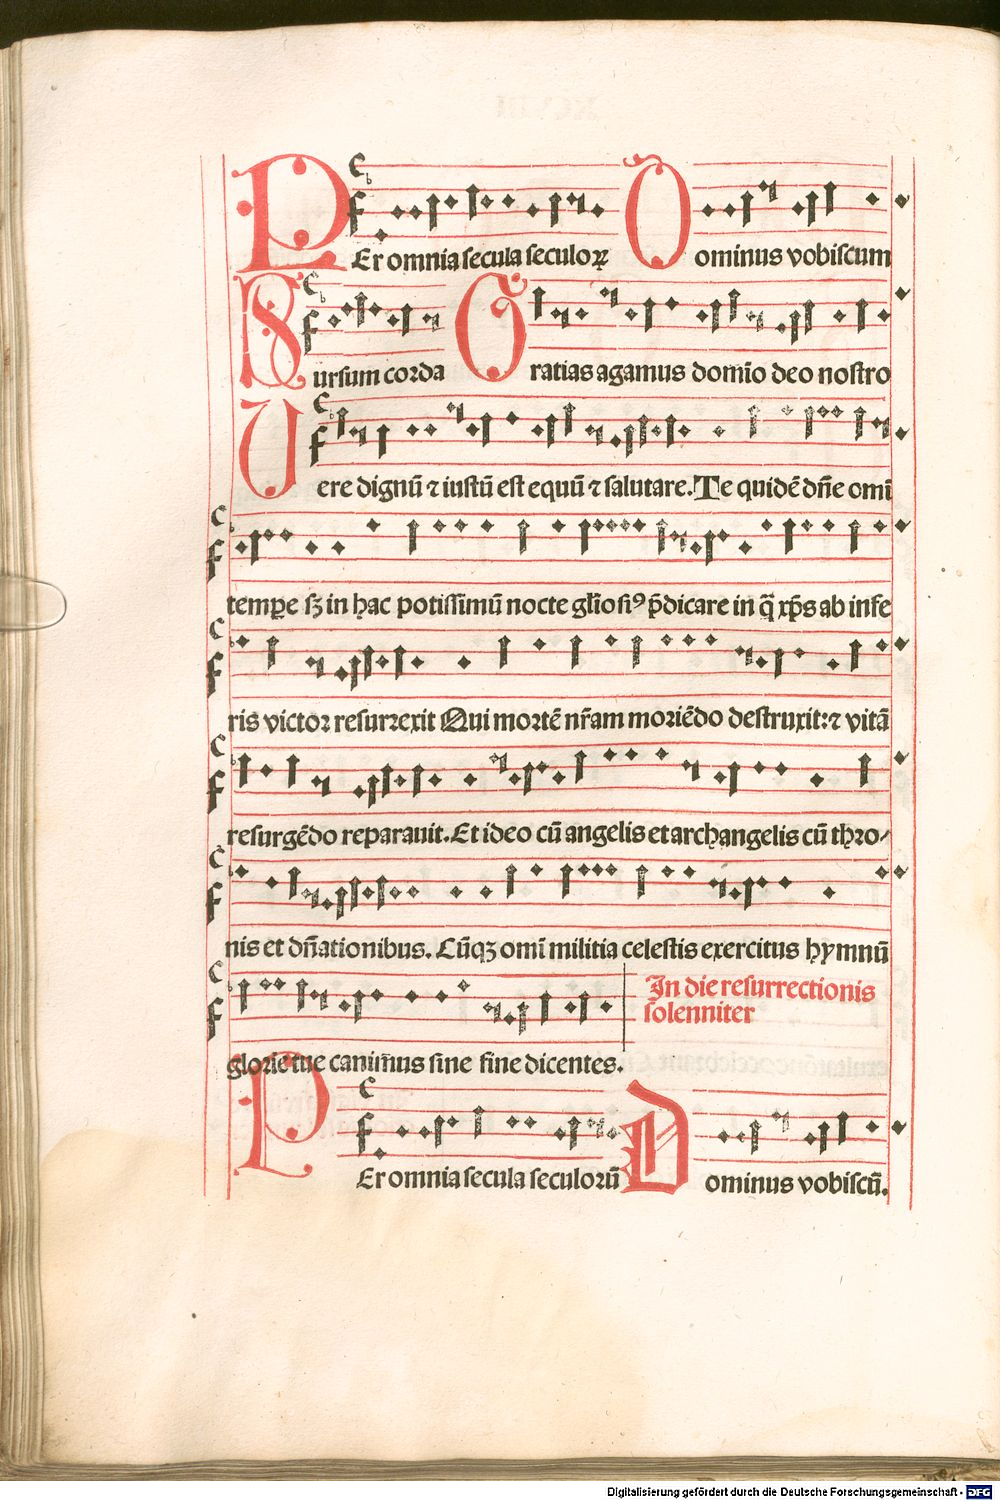 PEr omnia secula seculoꝝ Dominus vobiscum
Sursum corda Gratias agamus domīo deo nostro
Uere dignū ⁊ iustū est equū ⁊ salutare. Te quidē dn̄e omī
temꝑe sꝫ in hac potissimū nocte gl̄iosiꝰ p̄dicare in q̄ xp̄s ab infe
ris victor resurrexit Qui mortē nr̄am moriēdo destruxit: ⁊ vitā
resurgēdo reparauit. Et ideo cū angelis et archangelis cū thro/
nis et dn̄ationibus. Cūqꝫ omī militia celestis exercitus hymnū
glorie tue canim̄us sine fine dicentes.
In die resurrectionis
solenniter
PEr omnia secula seculorū Dominus vobiscū.
Digitalisierung gefördert durch die Deutsche Forschungsgemeinschaft - DFG